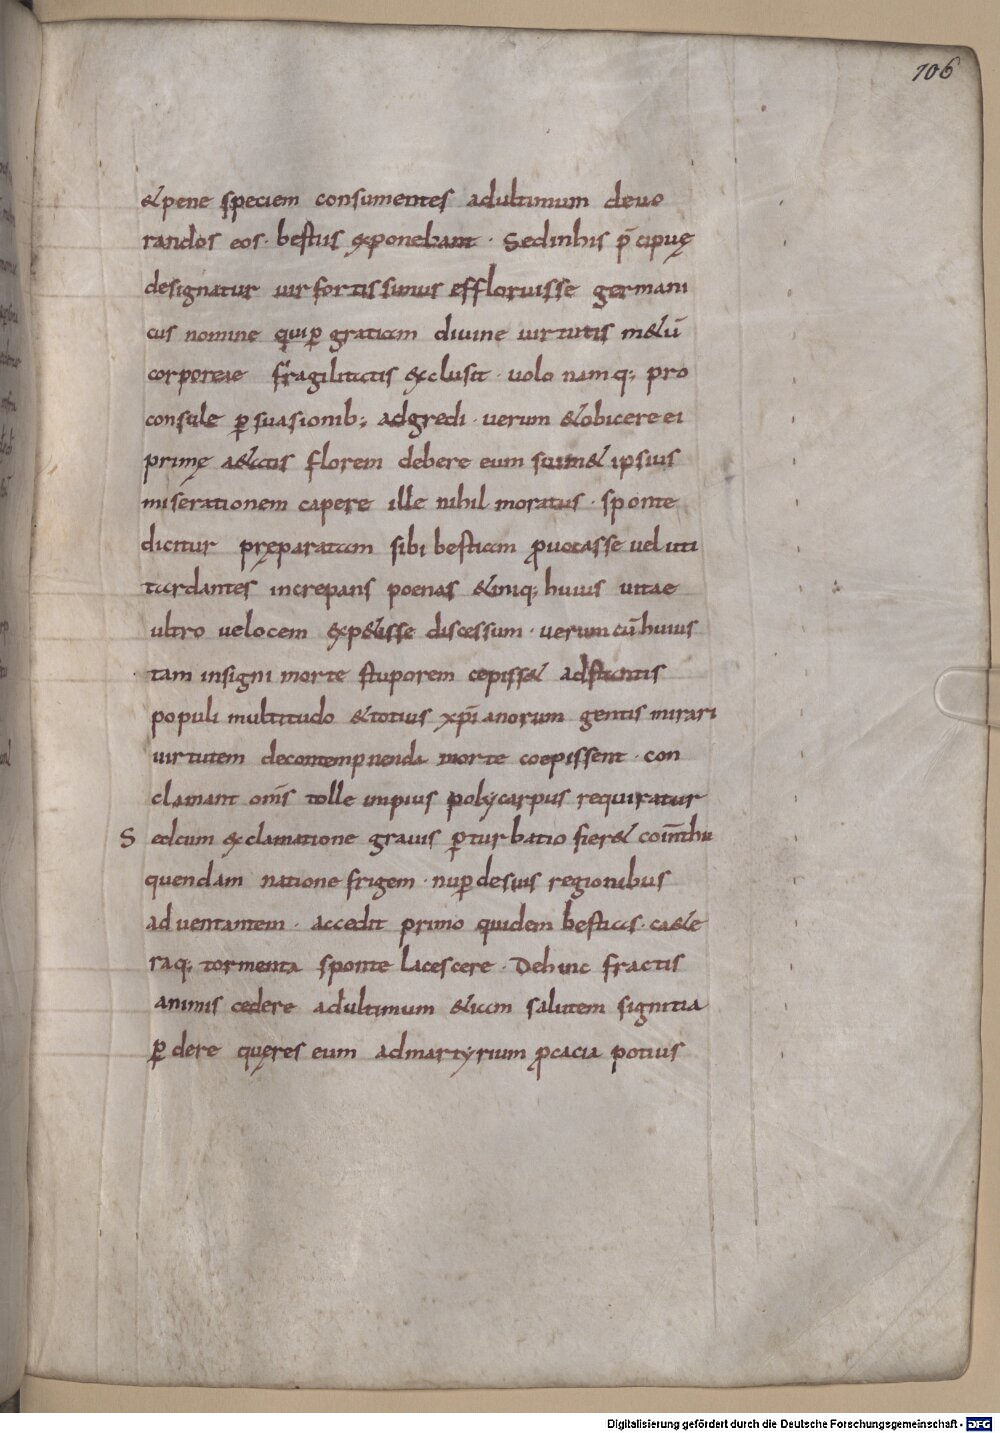 106
&pene speciem consumentes adultimum devo
randos eos· bestiis exponebant · Sedinhis p̄cipuę
designatur vir fortissimus effloruisse germani
cus nomine quip̱ gratiam divine virtutis m&ū
corporeae fragilitatis exclusit · volo namq; pro
consule p̱suasionib; adgredi · verum &obicere ei
primę a&atis florem debere eum sium& ipsius
miserationem capere ille nihil moratus · sponte
dicitur pręparatam sibi bestiam ꝓvocasse vel uti
tardantes increpans poenas &iniq; huius vitae
ultro velocem exp&isse discessum · verum cū huius
tam insigni morte stuporem cepiss& adstantis
populi multitudo &totius xp̄ianorum gentis mirari
virtutem decontempnenda morte coepissent · con
clamant om̄s tolle impius polycarpus requiratur
S edcum exclamatione gravis p̱turbatio fier&
quendam natione frigem · nup̱ desuis regionibus
adventantem · accedit primo quidem bestias · ca&e
raq; tormenta sponte lacescere · Dehinc fractis
animis cedere adultimum &iam salutem signitia
p̱dere quęres eum admartyrium ꝓcacia potius
Digitalisierung gefördert durch die Deutsche Forschungsgemeinschaft - DFG